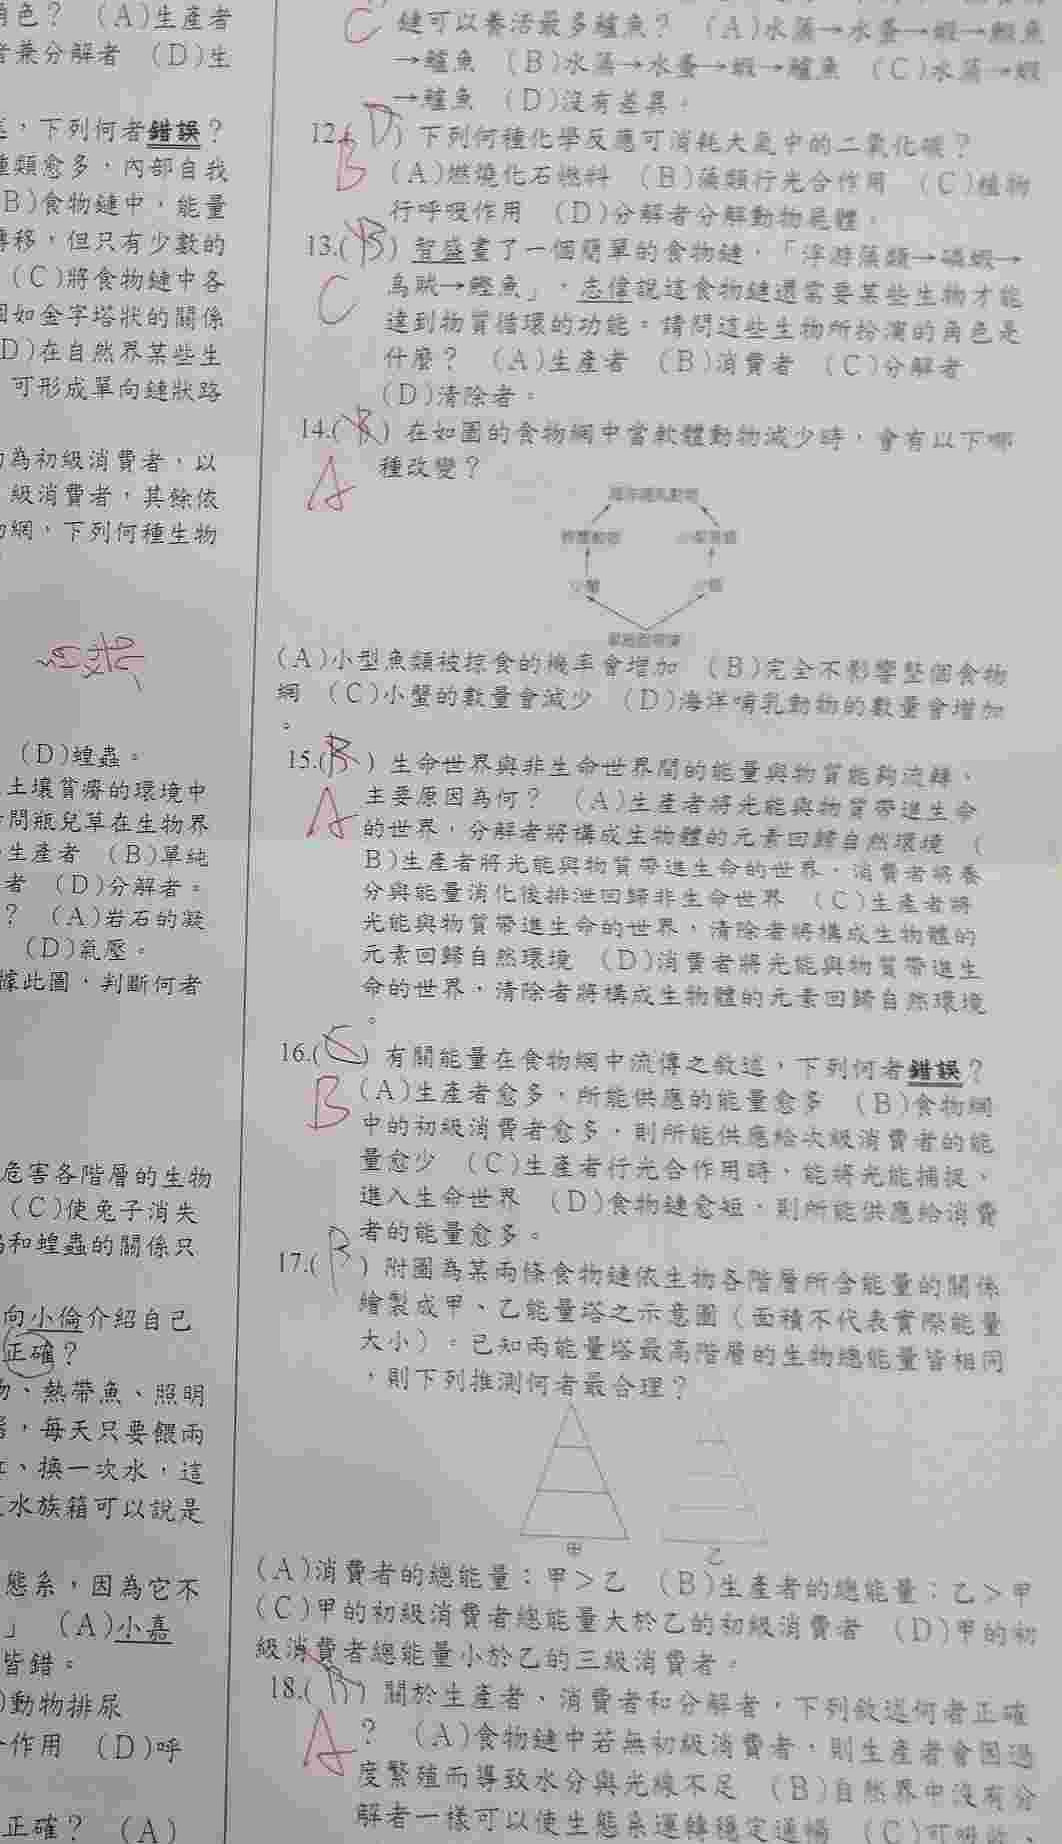 角色？ （A）生產者
者兼分解者 （D）生
，下列何者錯誤？
種類愈多，內部自我
B）食物鏈中，能量
轉移，但只有少數的
（C）將食物鏈中各
如金字塔狀的關係
D）在自然界某些生
可形成單向鏈狀路
為初級消費者，以
級消費者，其餘依
物網，下列何種生物
（D）蝗蟲。
土壤貧瘠的環境中
問瓶兒草在生物界
生產者 （B）單純
者 （D）分解者。
？ （A）岩石的凝
（D）氣壓。
據此圖，判斷何者
危害各階層的生物
（C）使兔子消失
和蝗蟲的關係只
向小倫介紹自己
正確？
物、熱帶魚、照明
，每天只要餵兩
、換一次水，這
水族箱可以說是
態系，因為它不
」 （A）小嘉
皆錯。
）動物排尿
作用 （D）呼
正確？ （A）
C 鏈可以養活最多鱸魚？ （A）水藻→水蚤→蝦→鯽魚
→鱸魚 （B）水藻→水蚤→蝦→鱸魚 （C）水藻→蝦
→鱸魚 （D）沒有差異。
12.( D ) 下列何種化學反應可消耗大氣中的二氧化碳？
B （A）燃燒化石燃料 （B）藻類行光合作用 （C）植物
行呼吸作用 （D）分解者分解動物屍體。
13.( B ) 智盛畫了一個簡單的食物鏈，「浮游藻類→磷蝦→
C 烏賊→鰹魚」，志偉說這食物鏈還需要某些生物才能
達到物質循環的功能。請問這些生物所扮演的角色是
什麼？ （A）生產者 （B）消費者 （C）分解者
（D）清除者。
14.( B ) 在如圖的食物網中當軟體動物減少時，會有以下哪
A 種改變？
海洋哺乳動物
軟體動物 小型魚類
小蟹 小蝦
（A）小型魚類被掠食的機率會增加 （B）完全不影響整個食物
網 （C）小蟹的數量會減少 （D）海洋哺乳動物的數量會增加
。
15.( B ) 生命世界與非生命世界間的能量與物質能夠流轉，
主要原因為何？ （A）生產者將光能與物質帶進生命
A 的世界，分解者將構成生物體的元素回歸自然環境 （
B）生產者將光能與物質帶進生命的世界，消費者將養
分與能量消化後排泄回歸非生命世界 （C）生產者將
光能與物質帶進生命的世界，清除者將構成生物體的
元素回歸自然環境 （D）消費者將光能與物質帶進生
命的世界，清除者將構成生物體的元素回歸自然環境
。
16.( C ) 有關能量在食物網中流傳之敘述，下列何者錯誤？
B （A）生產者愈多，所能供應的能量愈多 （B）食物網
中的初級消費者愈多，則所能供應給次級消費者的能
量愈少 （C）生產者行光合作用時，能將光能捕捉、
進入生命世界 （D）食物鏈愈短，則所能供應給消費
者的能量愈多。
17.( B ) 附圖為某兩條食物鏈依生物各階層所含能量的關係
繪製成甲、乙能量塔之示意圖（面積不代表實際能量
大小）。已知兩能量塔最高階層的生物總能量皆相同
，則下列推測何者最合理？
甲 乙
（A）消費者的總能量：甲＞乙 （B）生產者的總能量：乙＞甲
（C）甲的初級消費者總能量大於乙的初級消費者 （D）甲的初
級消費者總能量小於乙的三級消費者。
18.( ) 關於生產者、消費者和分解者，下列敘述何者正確
A ？ （A）食物鏈中若無初級消費者，則生產者會因過
度繁殖而導致水分與光線不足 （B）自然界中沒有分
解者一樣可以使生態系運轉穩定通暢 （C）